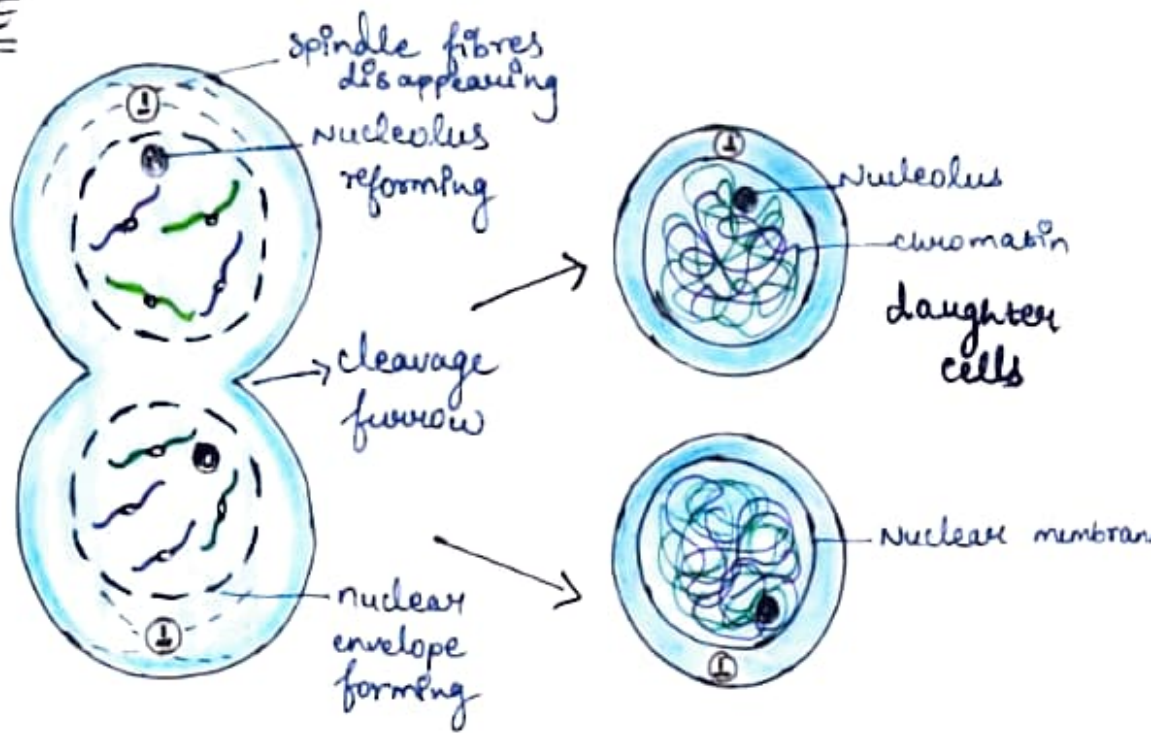 spindle fibres
disappearing
Nucleolus
reforming
cleavage
furrow
nuclear
envelope
forming
Nucleolus
chromatin
daughter
cells
Nuclear membran